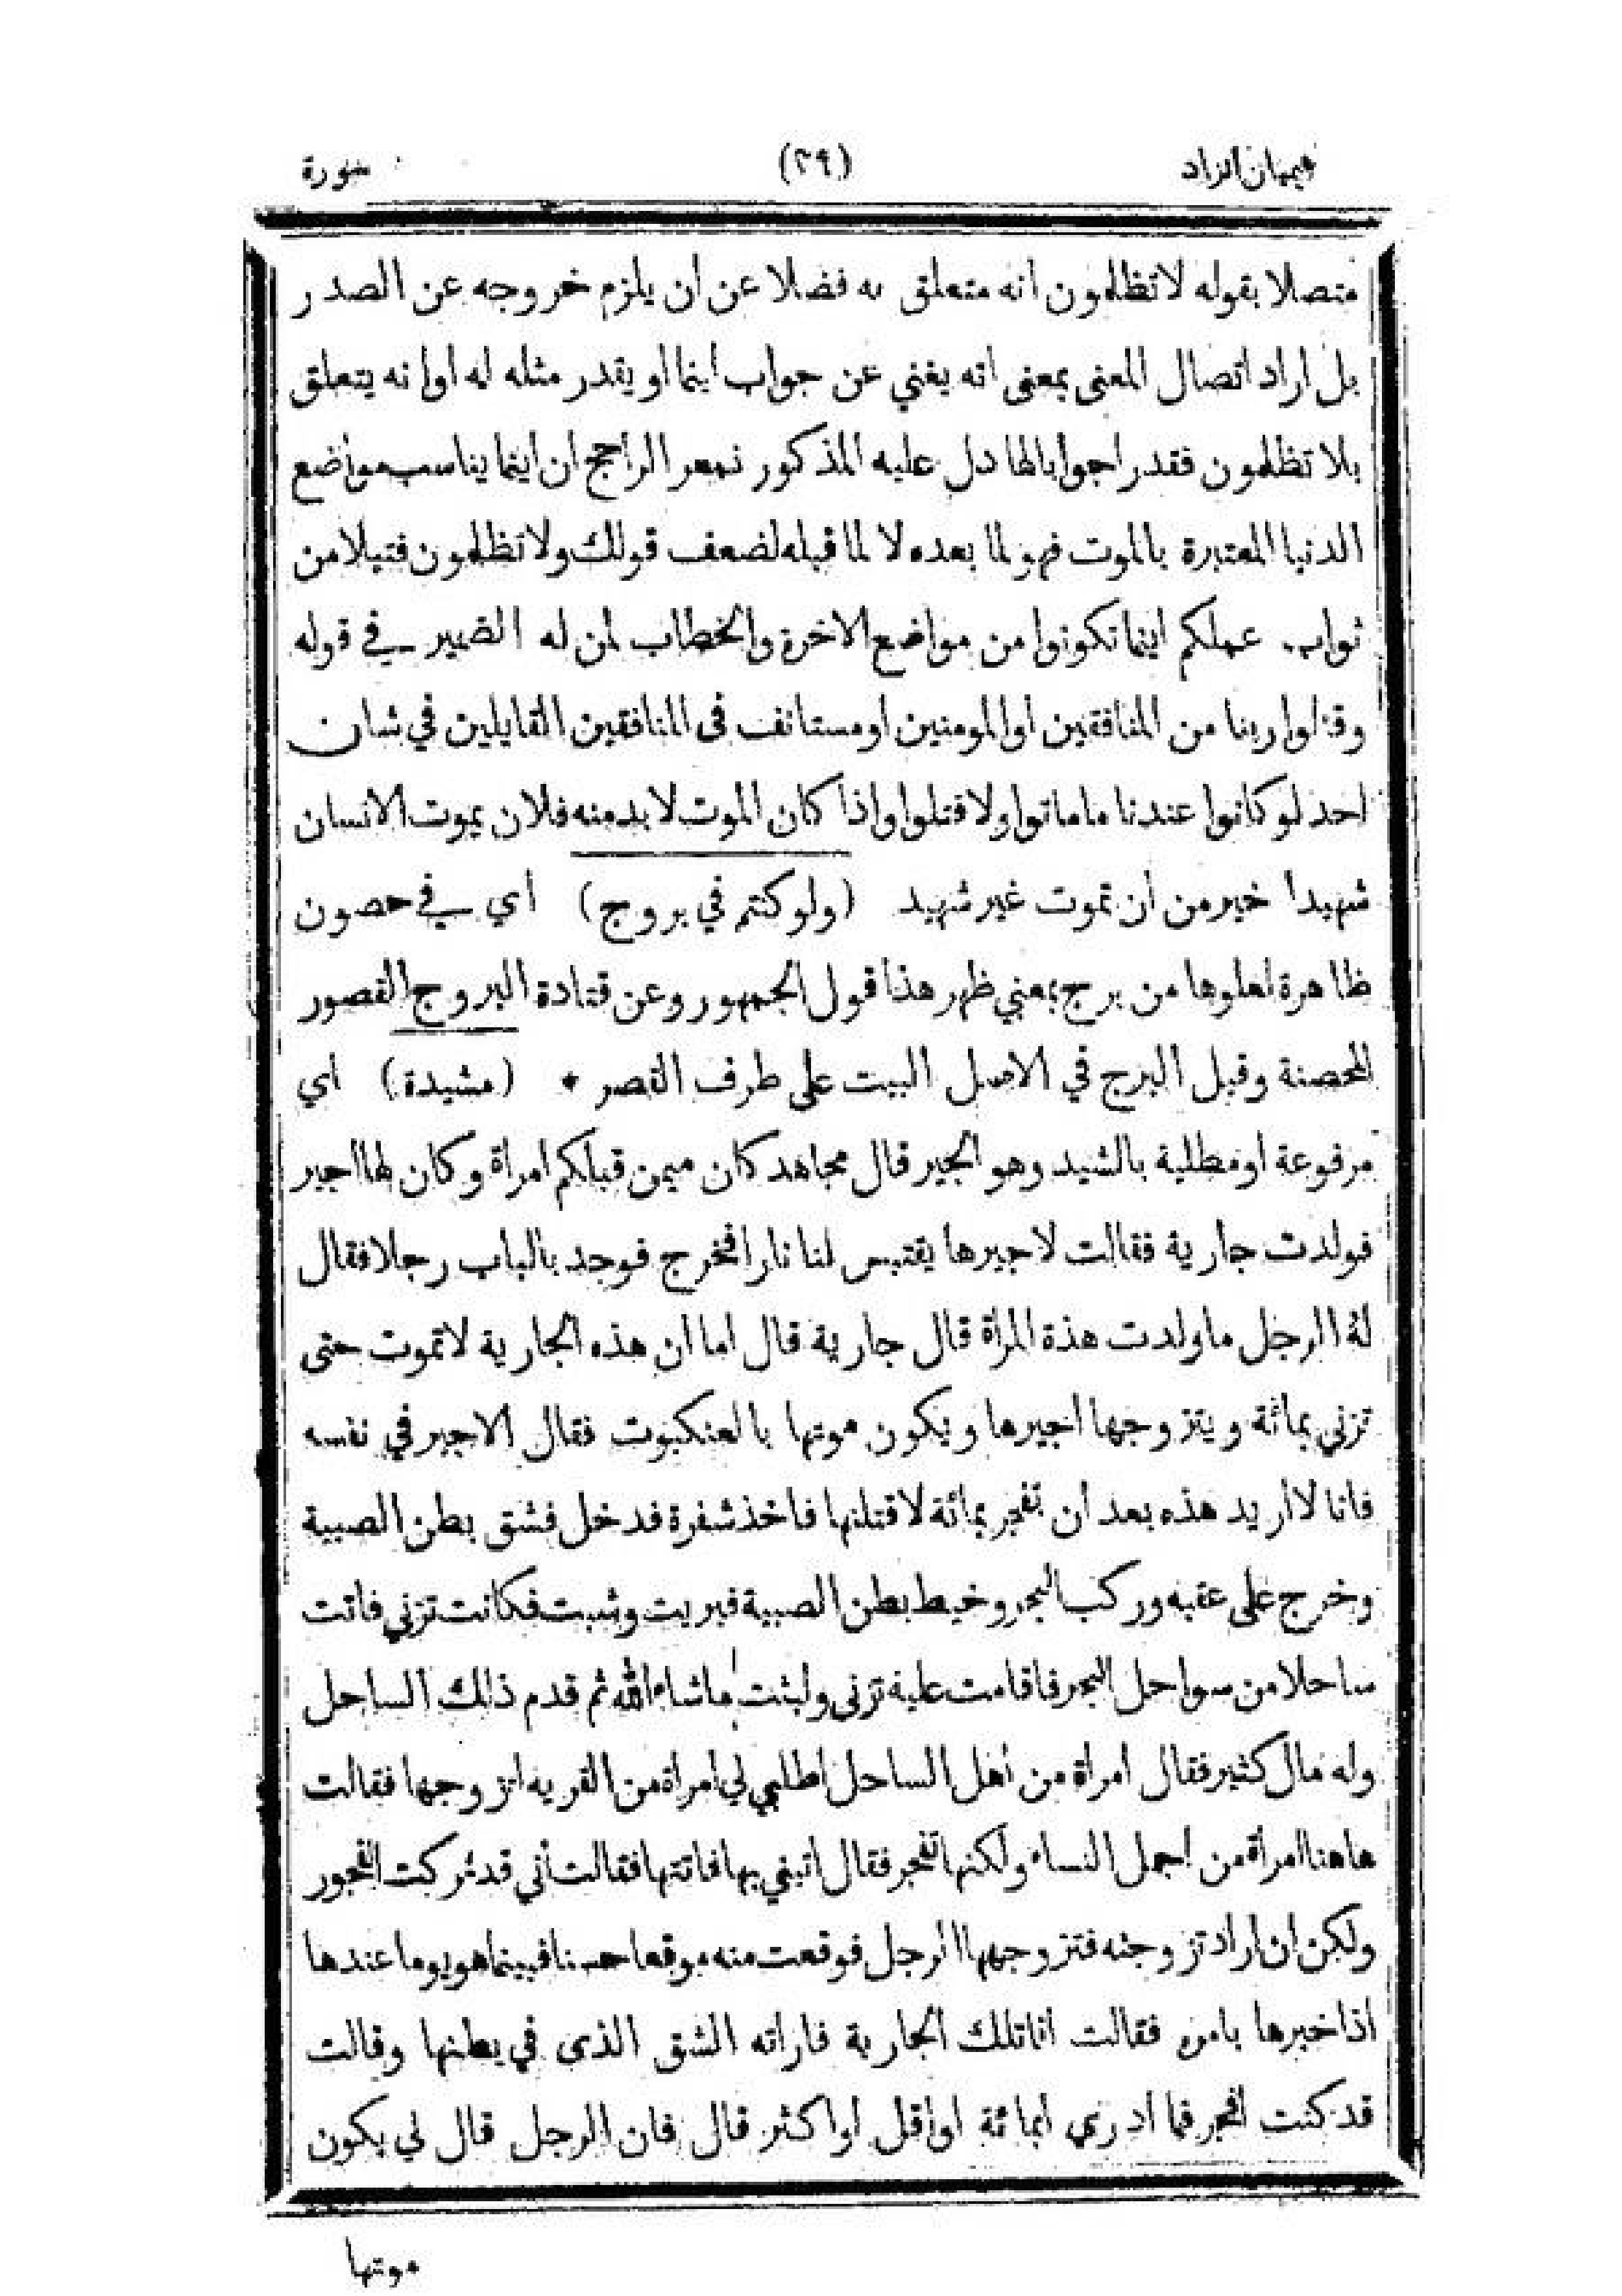 هيميان الزاد (٣٩) سورة
متصلا بقوله لا تظلمون انه متعلق به فضلا عن ان يلزم خروجه عن الصدر
بل اراد اتصال المعنى بمعنى انه يغني عن جواب اينما او يقدر مثله له او انه يتعلق
بلا تظلمون فقدر اجوابالها دل عليه المذكور نعم الراجح ان اينما يناسب مواضع
الدنيا المعتبرة بالموت فهو لما بعده لا لما قبله لضعف قولك ولا تظلمون فتيلا من
ثواب عملكم اينما تكونوا من مواضع الاخرة والخطاب لمن له الضمير في قوله
وقالوا ربنا من المنافقين او المومنين او مستانف فى المنافقين القايلين في شان
احد لو كانوا عندنا ما ماتوا ولا قتلوا واذا كان الموت لا بد منه فلان يموت الانسان
شهيدا خير من ان تموت غير شهيد (ولو كنتم في بروج) أي في حصون
ظاهرة لعلوها من برج بمعني ظهر هذا قول الجمهور وعن قتادة البروج القصور
المحصنة وقيل البرج في الاصل البيت على طرف القصر * (مشيدة) أي
مرفوعة او مطلية بالشيد وهو الجير قال مجاهد كان ميمن قبلكم امراة وكان لها اجير
فولدت جارية فقالت لاجيرها يقتبس لنا نارا فخرج فوجد بالباب رجلا فقال
له الرجل ما ولدت هذة المرأة قال جارية قال اما ان هذه الجارية لا تموت حتى
تزني بمائة ويتزوجها اجيرها ويكون موتها بالعنكبوت فقال الاجير في نفسه
فانا لا أريد هذه بعد أن تفجر بمائة لاقتلنها فاخذ شفرة فدخل فشق بطن الصبية
وخرج على عقبه وركب البحر وخيط بطن الصبية فبريت وشبت فكانت تزني فاتت
ساحلا من سواحل البحر فاقامت علية تزنى ولبثت ما شاء الله ثم قدم ذلك الساحل
وله مال كثير فقال امراة من أهل الساحل اطلبي لي امراة من القريه اتزوجها فقالت
هاهنا امرأة من اجمل النساء ولكنها تفجر فقال اتيني بها فاتتها فقالت أني قد تركت الفجور
ولكن ان اراد تزوجته فتزوجهها الرجل فوقعت منه موقعا حسنا فبينما هو يوما عندها
اذا خبرها بامره فقالت انا تلك الجارية فاراته الشق الذى في بطنها وقالت
قد كنت افجر فما أدري أبمائة او اقل او اكثر قال فان الرجل قال لي يكون
موتها